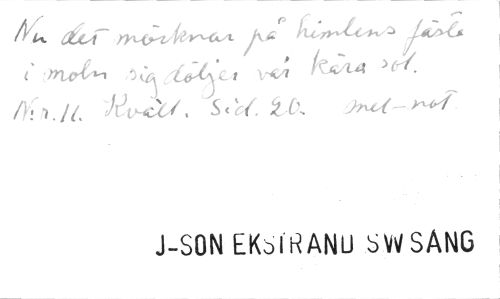 Nu det mörknar på himlens fäste
i moln sig döljer vår kära sol.
N:r. 11. Kväll. Sid. 20. mel-not
J-SON EKSTRAND SW SANG